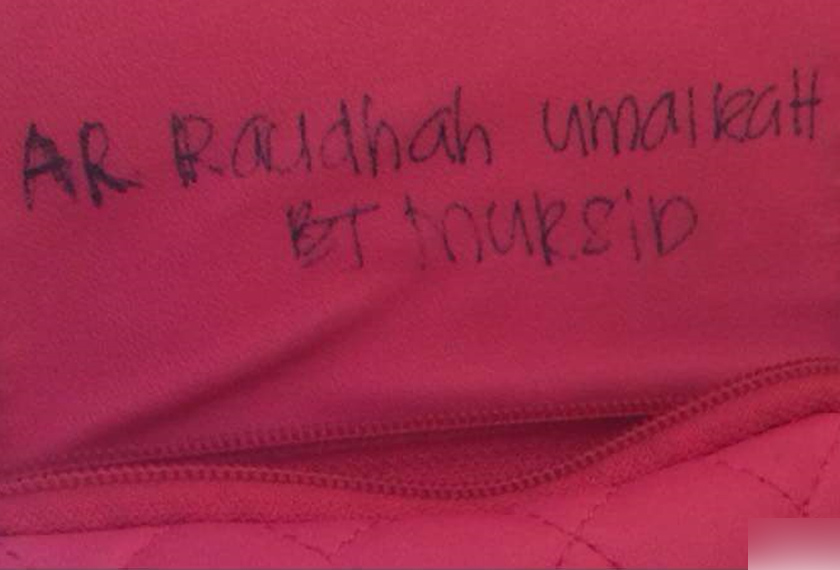 AR Raudhah umaikaH
BT MURSiD